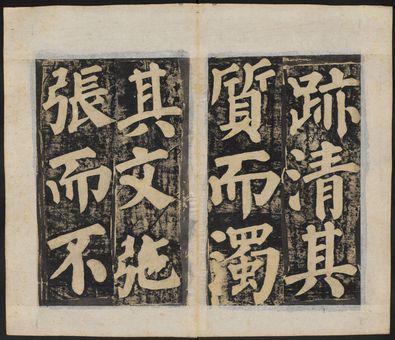 跡清其
質而濁
其文㢮
張而不